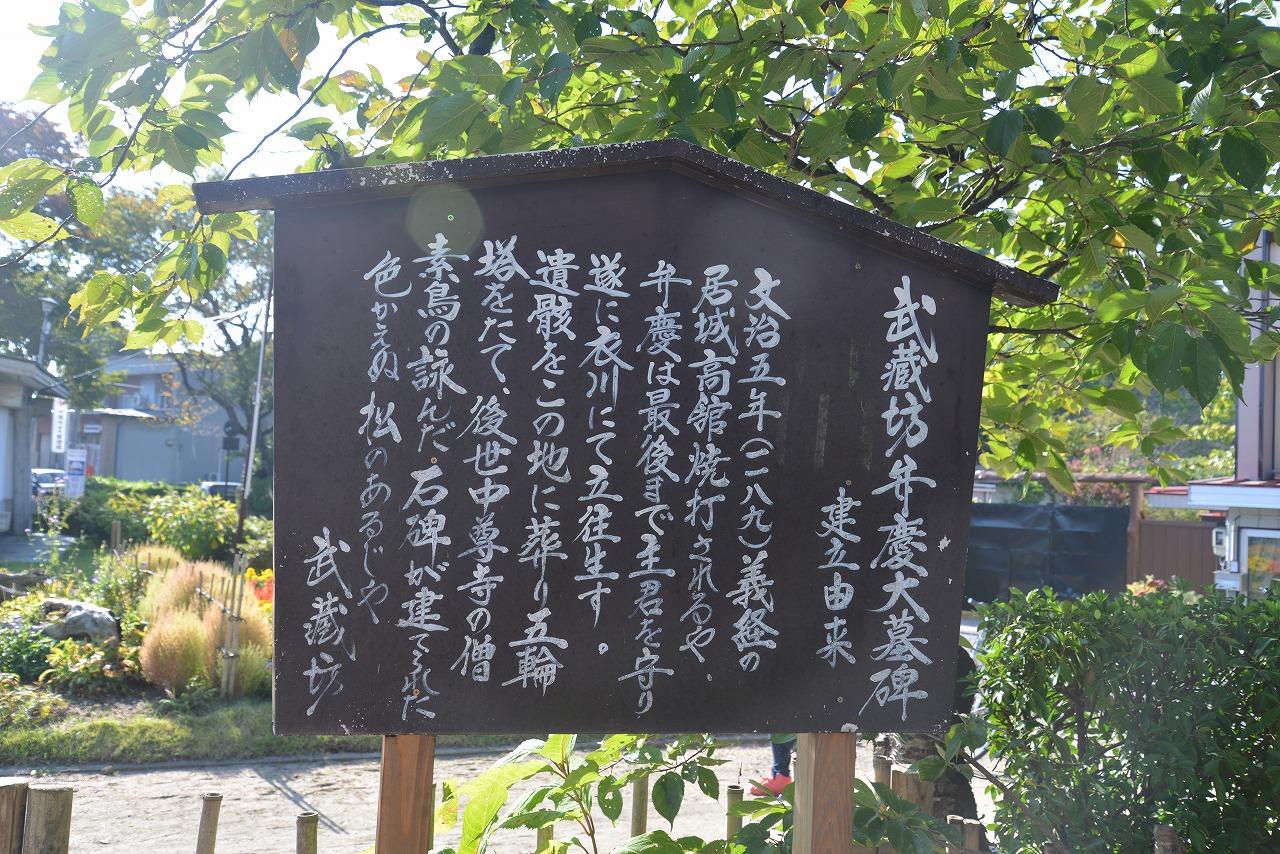 武蔵坊弁慶大墓碑
建立由来
文治五年(一一八九)義経の
居城高舘焼打されるや、
弁慶は最後まで主君を守り
遂に衣川にて立往生す。
遺骸をこの地に葬り五輪
塔をたて、後世中尊寺の僧
素鳥の詠んだ石碑が建てられた
色かえぬ松のあるじや
武蔵坊